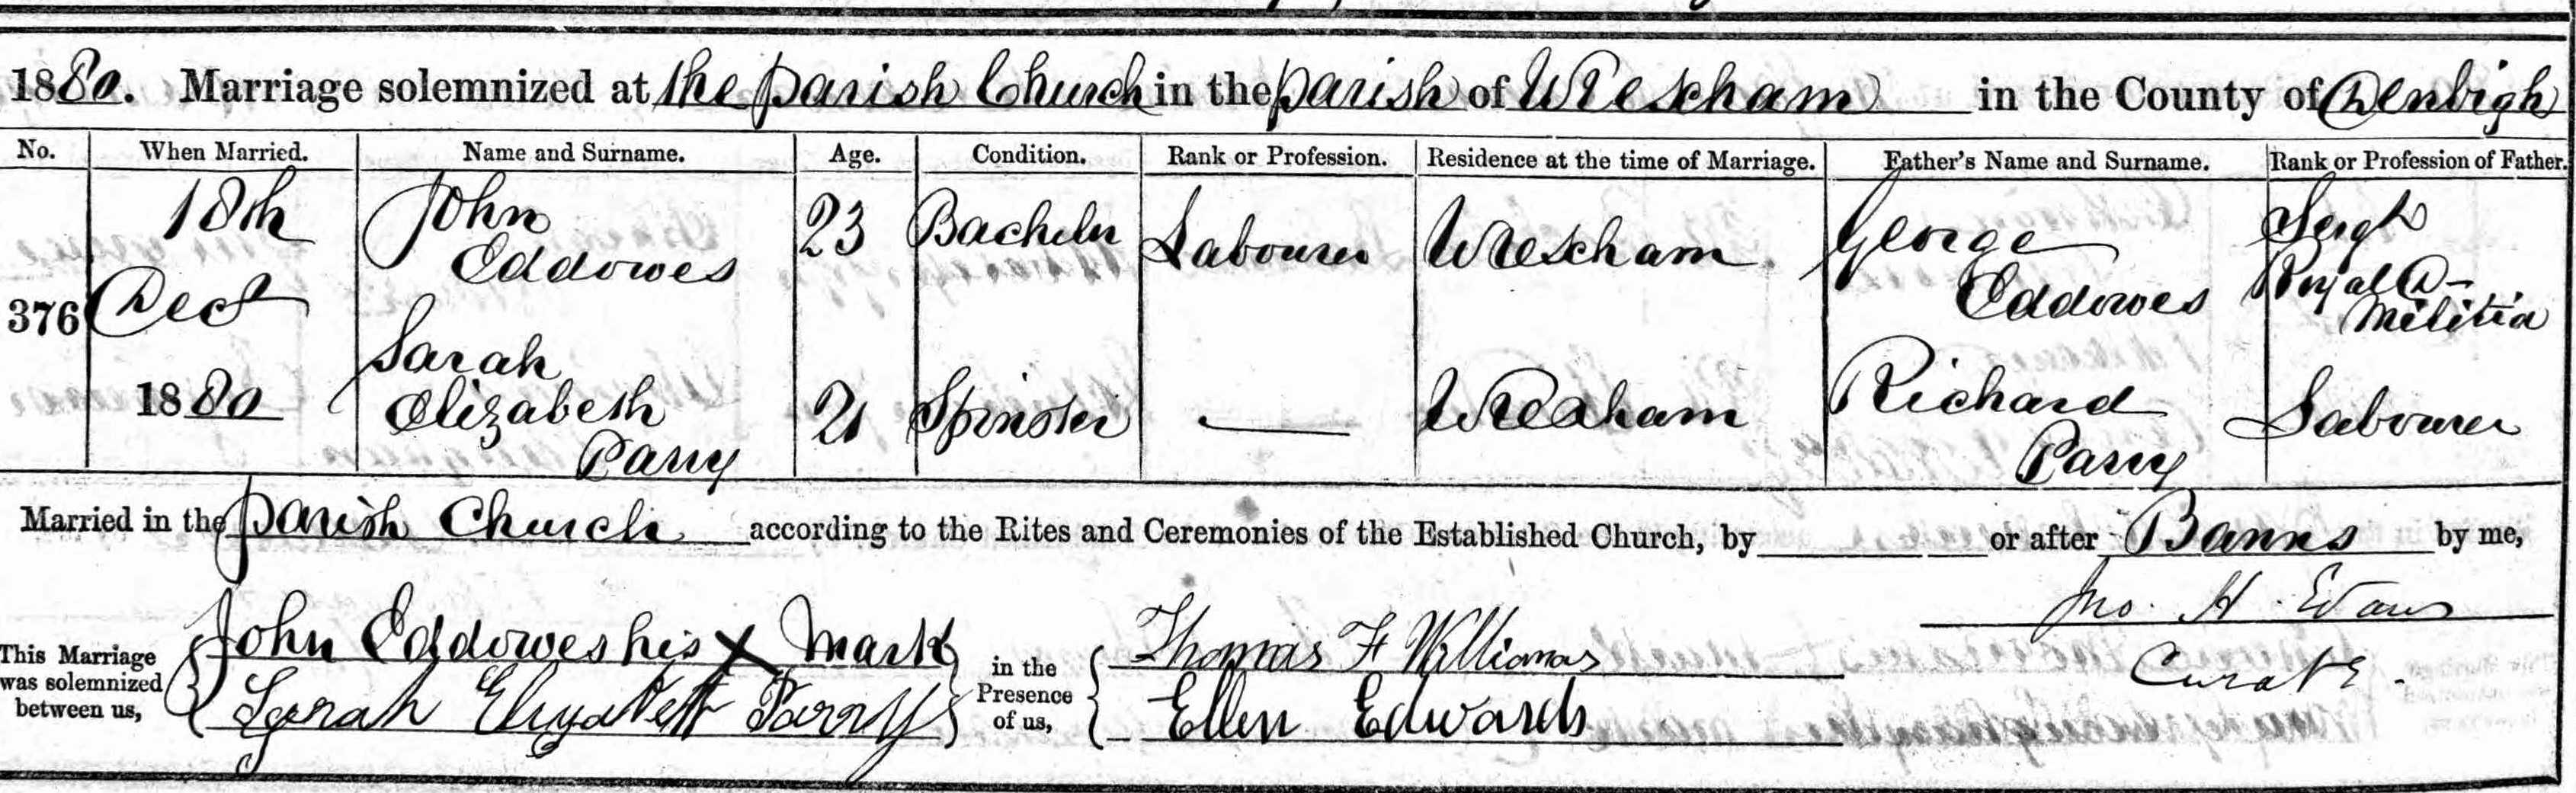 1880. Marriage solemnized at the parish Church in the parish of Wrexham in the County of Denbigh
No. When Married. Name and Surname. Age. Condition. Rank or Profession. Residence at the time of Marriage. Father's Name and Surname. Rank or Profession of Father.
376
18th
Dec
1880
John
Eddowes
23
Bachelor
Labourer
Wrexham
George
Eddowes
Sergt
Royal D-
Militia
Sarah
Elizabeth
Parry
21
Spinster
—
Wrexham
Richard
Parry
Labourer
Married in the parish Church according to the Rites and Ceremonies of the Established Church, by or after Banns by me,
Jno. H. Evans
Curate.
This Marriage
was solemnized
between us,
John Eddowes his X Mark
Sarah Elizabeth Parry
in the
Presence
of us,
Thomas F Williams
Ellen Edwards